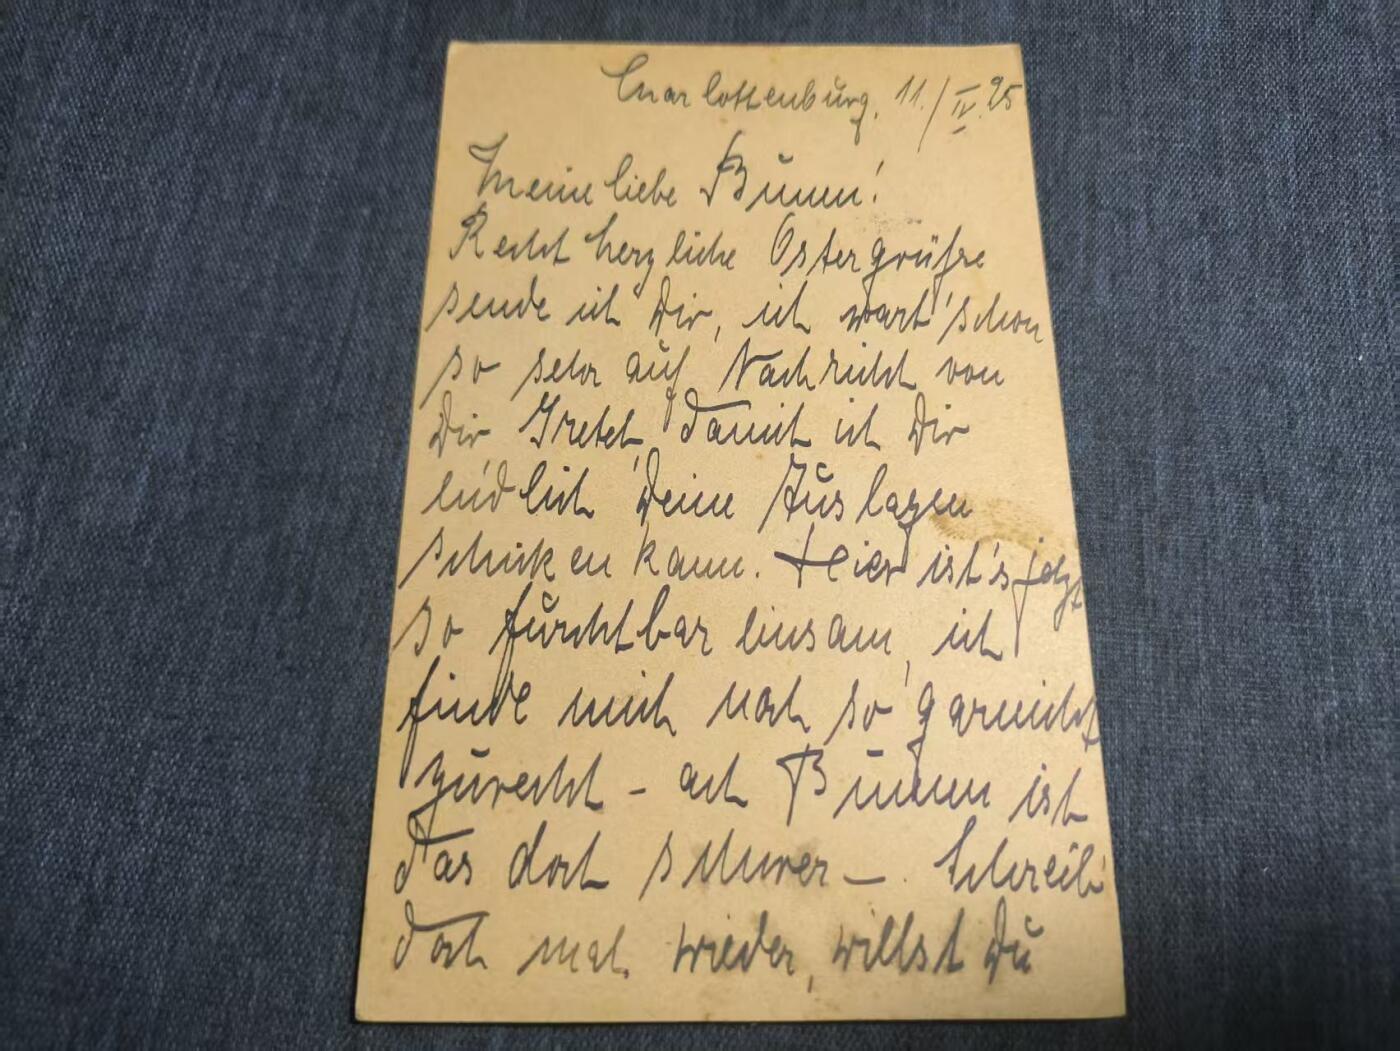 Charlottenburg, 11./IV. 25
Meine liebe Bumm!
Recht herzliche Ostergrüße
sende ich Dir, ich wart' schon
so sehr auf Nachricht von
Dir Gretch, damit ich Dir
endlich Deine Auslagen
schicken kann. Hier ist's jetzt
so furchtbar einsam, ich
finde mich noch so garnicht
zurecht – ach Bumm ist
das doch schwer –. Schreib'
doch mal wieder, willst Du